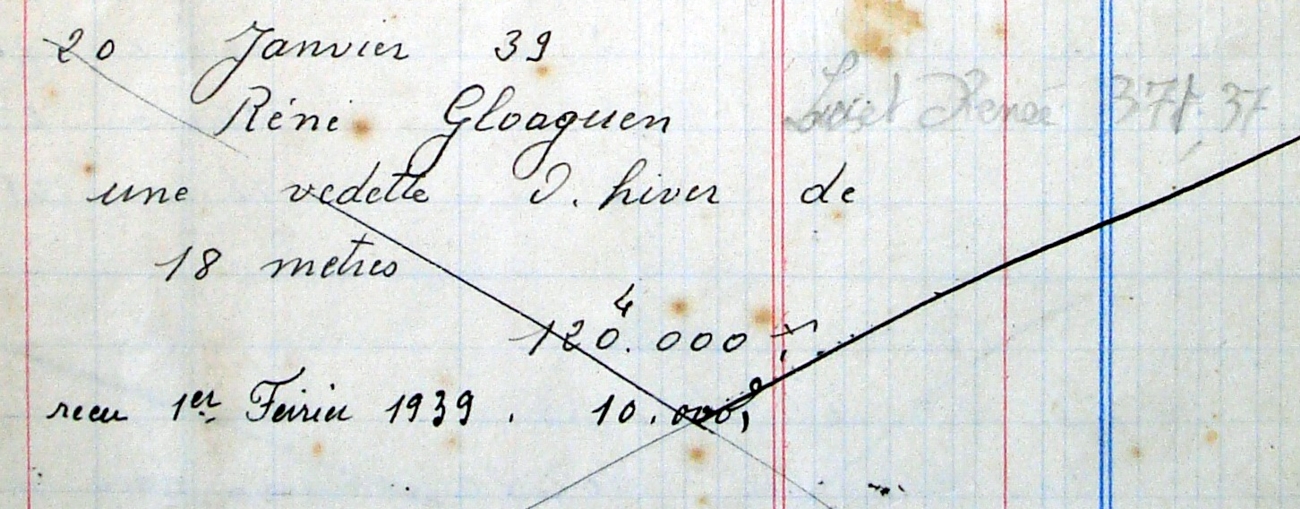 20 Janvier 39
Réné Gloaguen
une vedette d. hiver de
18 metres
4
120.000 F.
recu 1er Feirier 1939. 10.000,